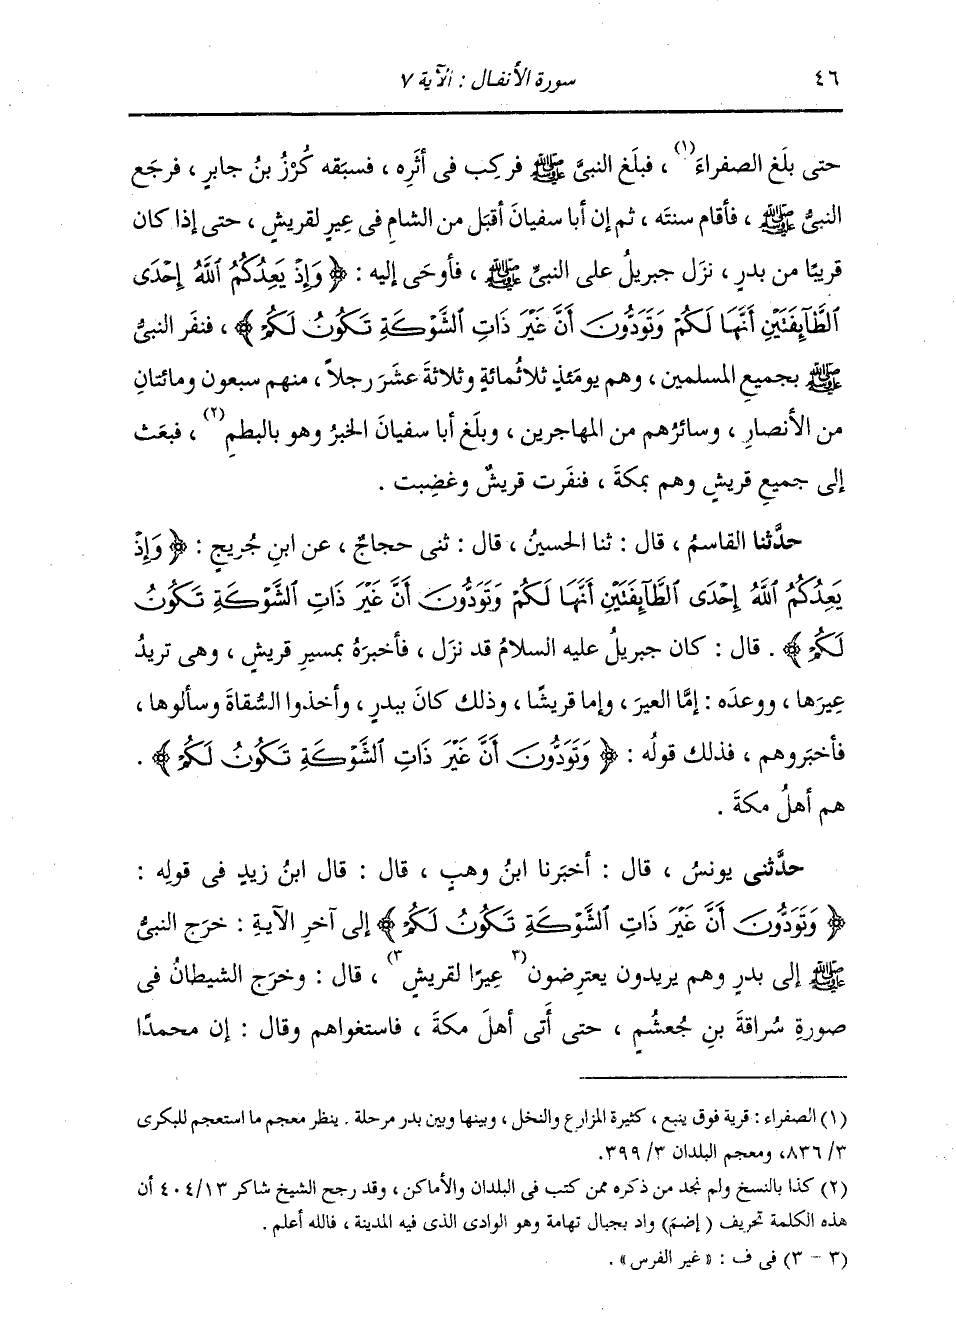 ٤٦ سورة الأنفال : الآية ٧
حتى بلَغ الصفراءَ(١) ، فبلَغ النبيَّ ﷺ فركِب فى أثَرِه ، فسبَقه كُرْزُ بنُ جابرٍ ، فرجَع
النبيُّ ﷺ ، فأقام سنتَه ، ثم إن أبا سفيانَ أقبَل من الشامِ فى عِيرٍ لقريشٍ ، حتى إذا كان
قريبًا من بدرٍ ، نزَل جبريلُ على النبيِّ ﷺ ، فأوحَى إليه : ﴿ وَإِذْ يَعِدُكُمُ ٱللَّهُ إِحْدَى
ٱلطَّآئِفَتَيْنِ أَنَّهَا لَكُمْ وَتَوَدُّونَ أَنَّ غَيْرَ ذَاتِ ٱلشَّوْكَةِ تَكُونُ لَكُمْ ﴾ ، فنفَر النبيُّ
ﷺ بجميعِ المسلمين ، وهم يومَئذٍ ثلاثُمائةٍ وثلاثةَ عشَرَ رجلًا ، منهم سبعون ومائتانِ
من الأنصارِ ، وسائرُهم من المهاجرين ، وبلَغ أبا سفيانَ الخبرُ وهو بالبطمِ(٢) ، فبعَث
إلى جميعِ قريشٍ وهم بمكةَ ، فنفَرت قريشٌ وغضِبت .
حدَّثنا القاسمُ ، قال : ثنا الحسينُ ، قال : ثنى حجاجٌ ، عن ابنِ جُريجٍ : ﴿ وَإِذْ
يَعِدُكُمُ ٱللَّهُ إِحْدَى ٱلطَّآئِفَتَيْنِ أَنَّهَا لَكُمْ وَتَوَدُّونَ أَنَّ غَيْرَ ذَاتِ ٱلشَّوْكَةِ تَكُونُ
لَكُمْ ﴾ . قال : كان جبريلُ عليه السلامُ قد نزَل ، فأخبرَهُ بمسيرِ قريشٍ ، وهى تريدُ
عِيرَها ، ووعدَه : إمَّا العيرَ ، وإما قريشًا ، وذلك كانَ ببدرٍ ، وأخذوا السُّقاةَ وسألوها ،
فأخبَروهم ، فذلك قولُه : ﴿ وَتَوَدُّونَ أَنَّ غَيْرَ ذَاتِ ٱلشَّوْكَةِ تَكُونُ لَكُمْ ﴾ .
هم أهلُ مكةَ .
حدَّثنى يونسُ ، قال : أخبَرنا ابنُ وهبٍ ، قال : قال ابنُ زيدٍ فى قولِه :
﴿ وَتَوَدُّونَ أَنَّ غَيْرَ ذَاتِ ٱلشَّوْكَةِ تَكُونُ لَكُمْ ﴾ إلى آخرِ الآيةِ : خرَج النبيُّ
ﷺ إلى بدرٍ وهم يريدون يعترِضون(٣ عِيرًا لقريشٍ ٣) ، قال : وخرَج الشيطانُ فى
صورةِ سُراقةَ بنِ جُعشُمٍ ، حتى أَتى أهلَ مكةَ ، فاستغواهم وقال : إن محمدًا
(١) الصفراء : قرية فوق ينبع ، كثيرة المزارع والنخل ، وبينها وبين بدر مرحلة . ينظر معجم ما استعجم للبكرى
٣/ ٨٣٦، ومعجم البلدان ٣/ ٣٩٩.
(٢) كذا بالنسخ ولم نجد من ذكره ممن كتب فى البلدان والأماكن ، وقد رجح الشيخ شاكر ٤٠٤/١٣ أن
هذه الكلمة تحريف ( إضم) واد بجبال تهامة وهو الوادى الذى فيه المدينة ، فالله أعلم .
(٣ - ٣) فى ف : « غير الفرس» .